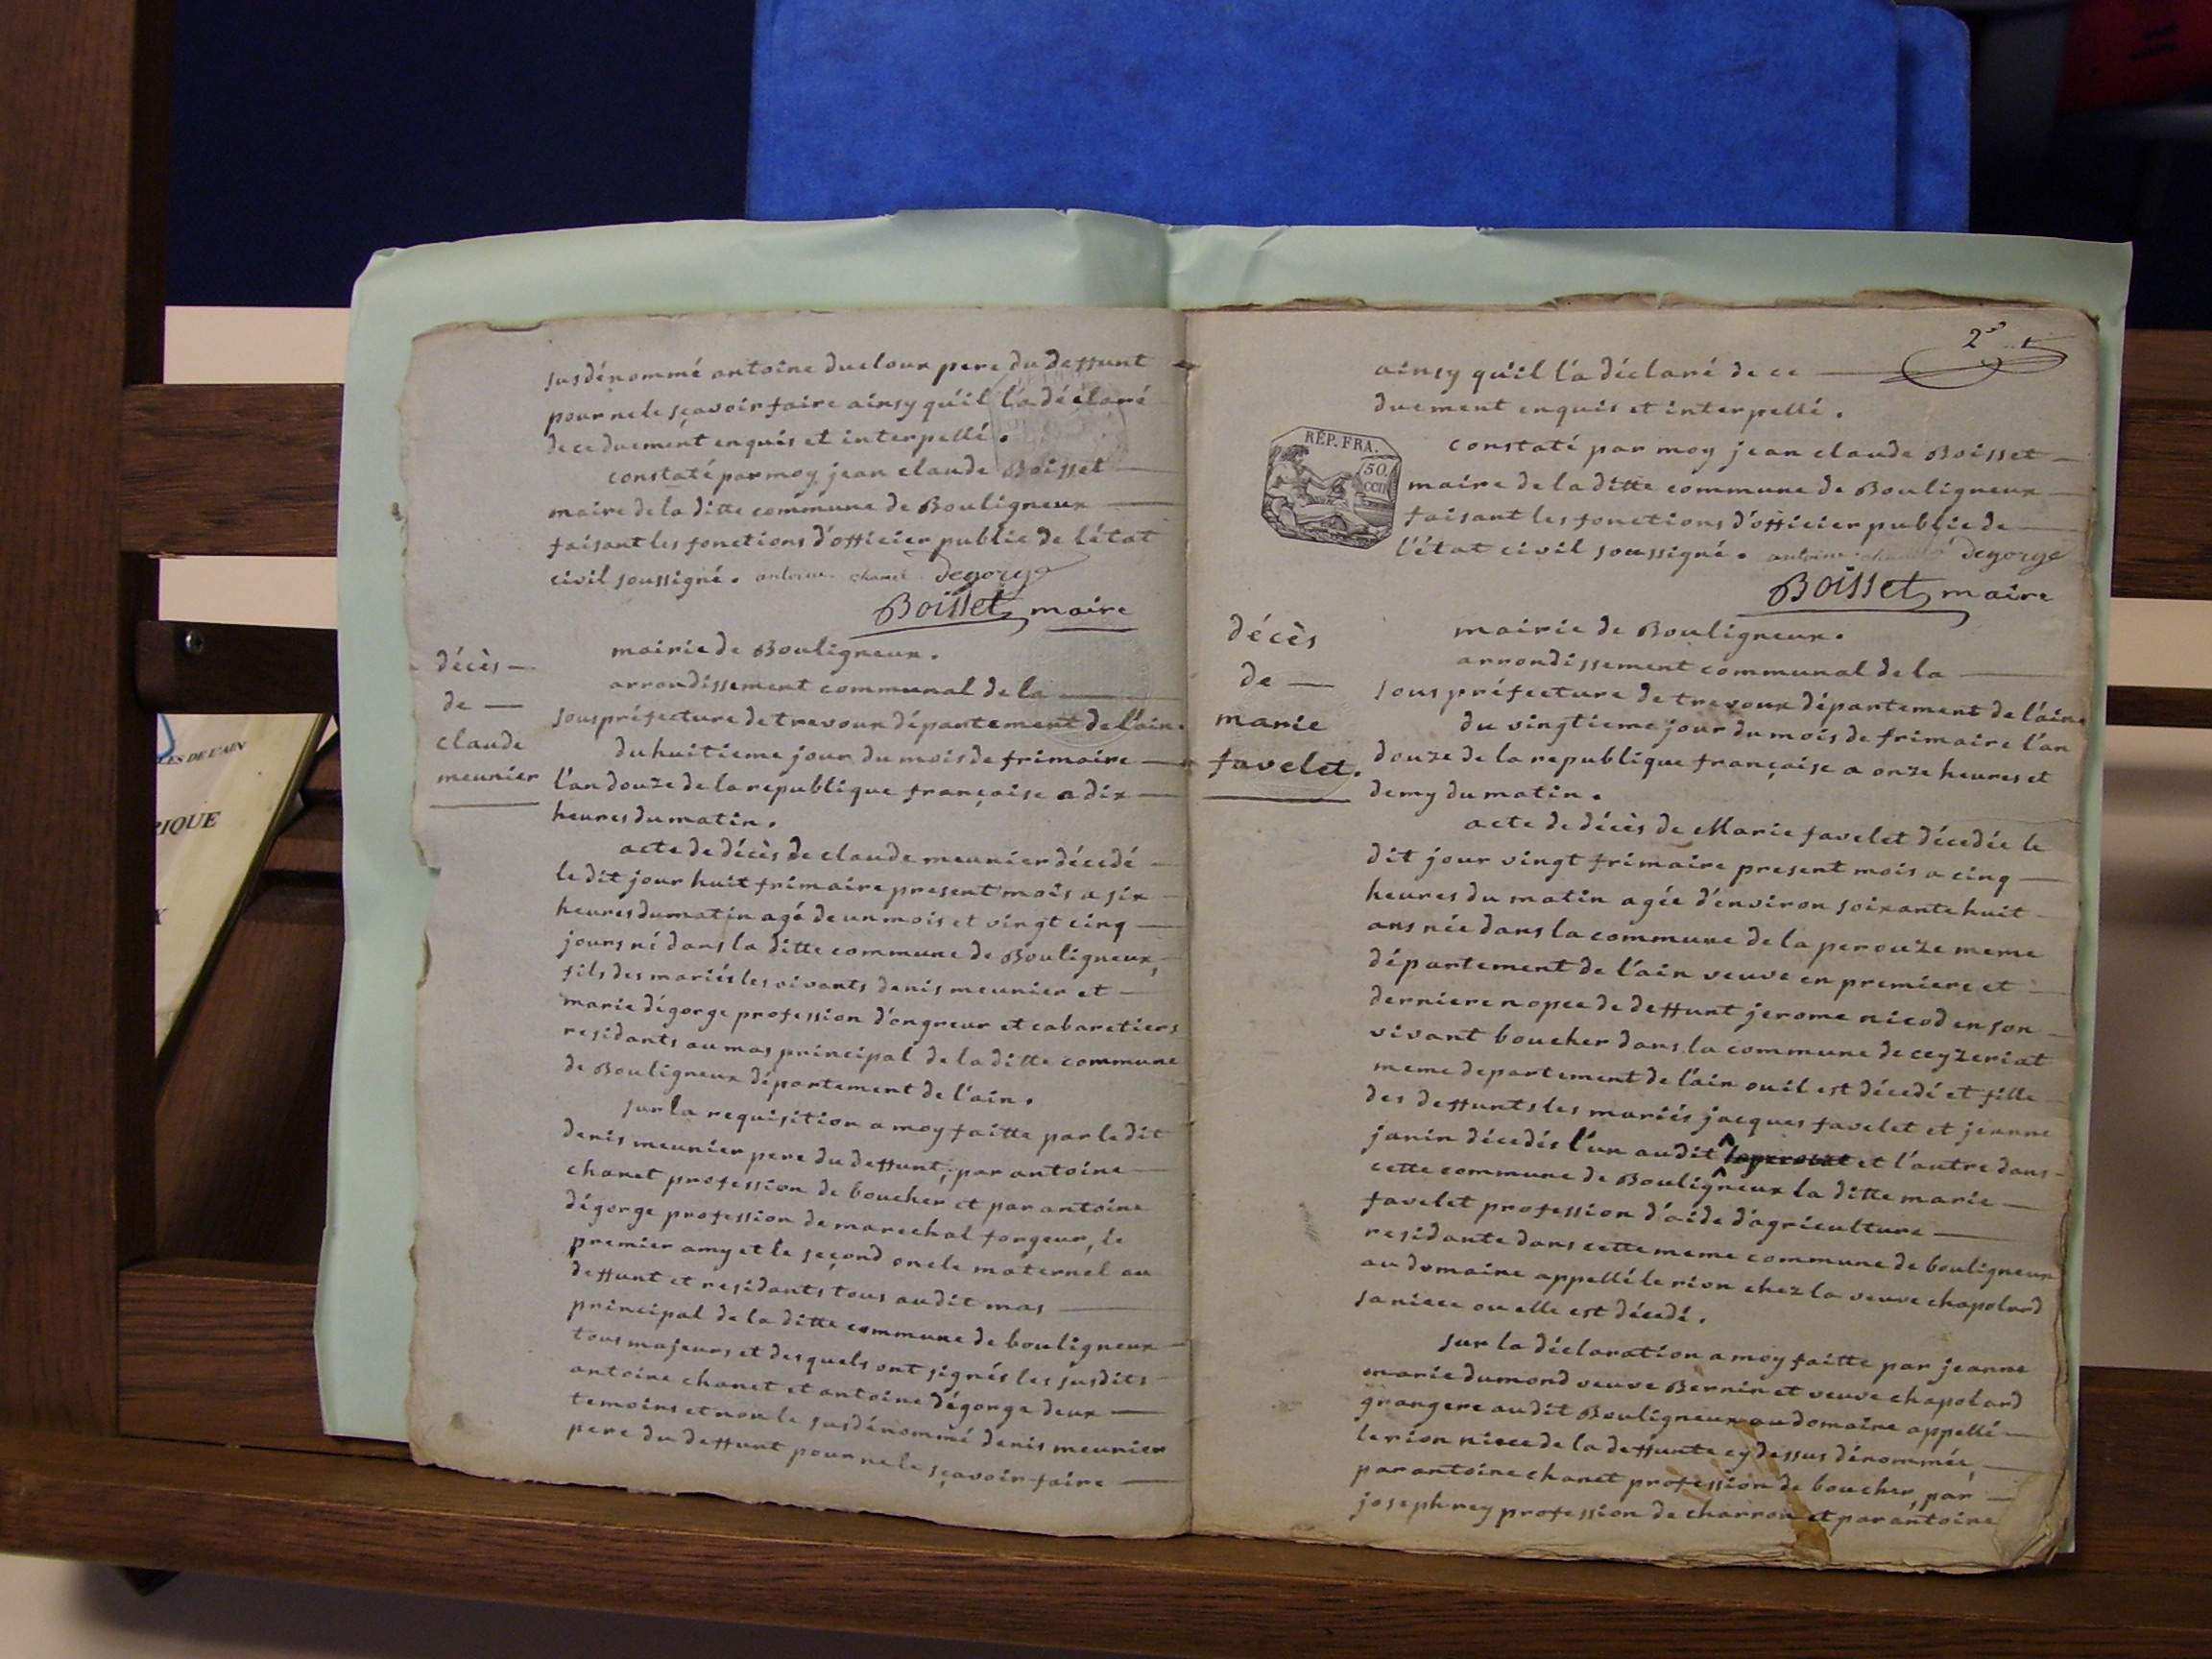 susdénommé antoine ducloux pere du deffunt
pour ne le sçavoir faire ainsy qu'il l'a déclaré
de ce duement enquis et interpellé.
constaté par moy jean claude Boisset
maire de la ditte commune de Bouligneux
faisant les fonctions d'officier public de l'état
civil soussigné. antoine chanet degorge
Boisset maire
décès
de
claude
meunier
mairie de Bouligneux.
arrondissement communal de la
sous préfecture de trevoux département de l'ain.
du huitieme jour du mois de frimaire
l'an douze de la republique française a dix
heures du matin.
acte de décès de claude meunier décedé
le dit jour huit frimaire present mois a six
heures du matin agé de un mois et vingt cinq
jours né dans la ditte commune de Bouligneux,
fils des mariés les vivants denis meunier et
marie dégorge profession d'ongreur et cabaretiers
residants au mas principal de la ditte commune
de Bouligneux département de l'ain.
sur la requisition a moy faitte par le dit
denis meunier pere du deffunt, par antoine
chanet profession de boucher et par antoine
dégorge profession de marechal forgeur, le
premier amy et le seçond oncle maternel au
deffunt et residants tous audit mas
principal de la ditte commune de bouligneux
tous majeurs et desquels ont signés les susdits
antoine chanet et antoine dégorge deux
temoins et non le susdénommé denis meunier
pere du deffunt pour ne le sçavoir faire
2
ainsy qu'il l'a déclaré de ce
duement enquis et interpellé.
RÉP. FRA.
50
constaté par moy jean claude Boisset
maire de la ditte commune de Bouligneux
faisant les fonctions d'officier public de
l'état civil soussigné. antoine chanet degorge
Boisset maire
décès
de
marie
favelet.
mairie de Bouligneux.
arrondissement communal de la
sous préfecture de trevoux département de l'ain
du vingtieme jour du mois de frimaire l'an
douze de la republique française a onze heures et
demy du matin.
acte de décès de Marie favelet décedée le
dit jour vingt frimaire present mois a cinq
heures du matin agée d'environ soixante huit
ans née dans la commune de la perouze meme
département de l'ain veuve en premiere et
derniere nopce de deffunt jerome nicod en son
vivant boucher dans la commune de ceyzeriat
meme departement de l'ain ou il est décedé et fille
des deffunts les mariés jacques favelet et jeanne
janin décedés l'un audit et l'autre dans
cette commune de Bouligneux la ditte marie
favelet profession d'aide d'agriculture
residante dans cette meme commune de bouligneux
au domaine appellé le rion chez la veuve chapolard
sa niece ou elle est décedé.
sur la déclaration a moy faitte par jeanne
marie dumond veuve Bernin et veuve chapolard
grangere audit Bouligneux au domaine appellé
le rion niece de la deffunte cy dessus dénommée,
par antoine chanet profession de boucher, par
joseph rey profession de charron et par antoine